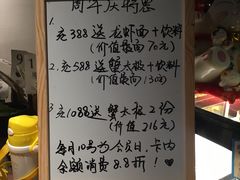 周年庆特惠
1. 充388送龙虾面+饮料
(价值最高70元)
2. 充588送蟹太极+饮料
(价值最高130元)
3 充1088送蟹太极2份
(价值216元)
每月10号为会员日,卡内
余额消费8.8折!